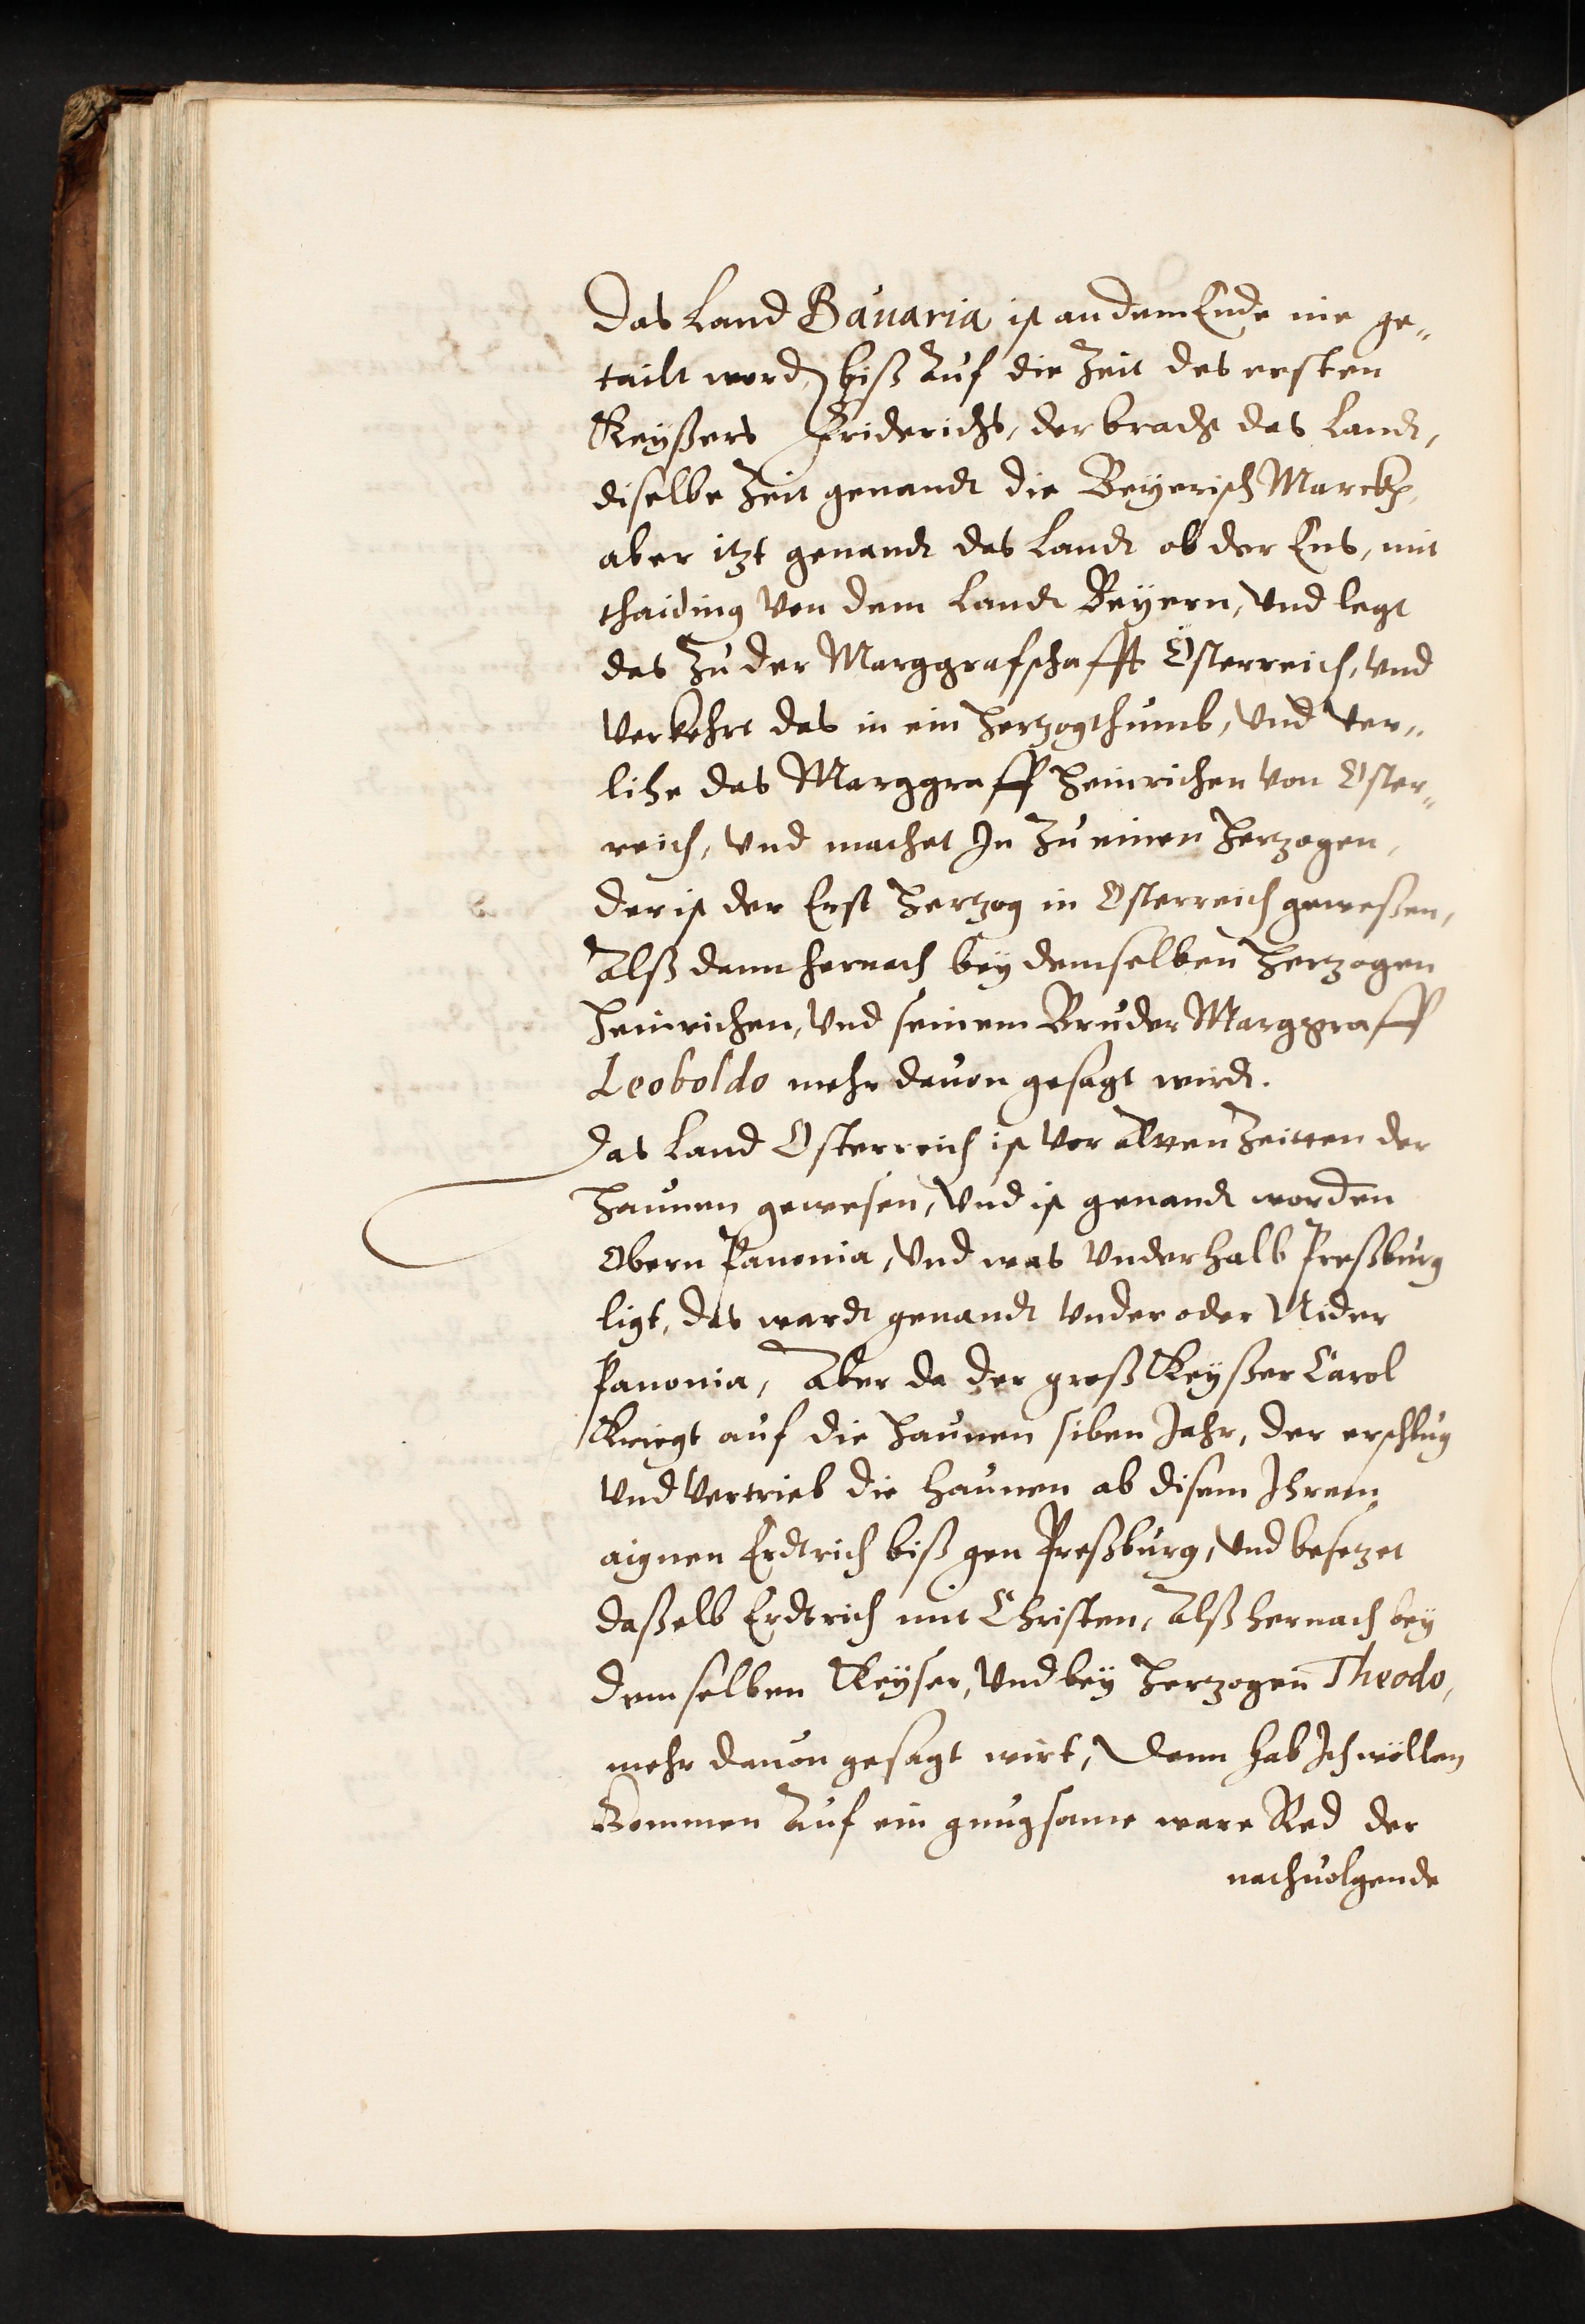 Das Land Bauaria ist an dem Ende nie ge„
tailt word, biß Auf die Zeit des ersten
Keyßers Friderichs, der brach das Landt,
diselbe Zeit genandt die Beyerisch Marckh,
aber itzt genandt das Landt ob der Ens, mit
thaiding von dem Landt Beyern, vnd legt
das Zu der Marggrafschafft Österreich, vnd
verkehrt das in ein Hertzogthumb, vnd ver„
lihe das Marggraff Heinrichen von Oster„
reich, vnd machet In Zu einen Hertzogen,
der ist der Erst Hertzog in Osterreich geweßen,
Alß dann hernach bey demselben Hertzogen
Heinrichen, vnd seinem Bruder Marggraff
Leoboldo mehr dauon gesagt wirdt.
Das Land Osterreich ist vor Alten Zeitten der
Haunen gewesen, vnd ist genandt worden
Obern Panonia, vnd was vnderhalb Preßburg
ligt, das wardt genandt vnder oder Nider
Panonia, Aber da der groß Keyßer Carol
Kriegt auf die Haunen siben Jahr, der erschlug
vnd vertrieb die Haunen ab disem Ihrem
aignen Erdtrich biß gen Preßburg, vnd besetzet
daßelb Erdtrich mit Christen, Alß hernach bey
demselben Keyser, vnd bey Hertzogen Theodo,
mehr dauon gesagt wirt, Dann hab Ich wöllen
Kommen Auf ein gnugsame ware Red der
nachuolgende